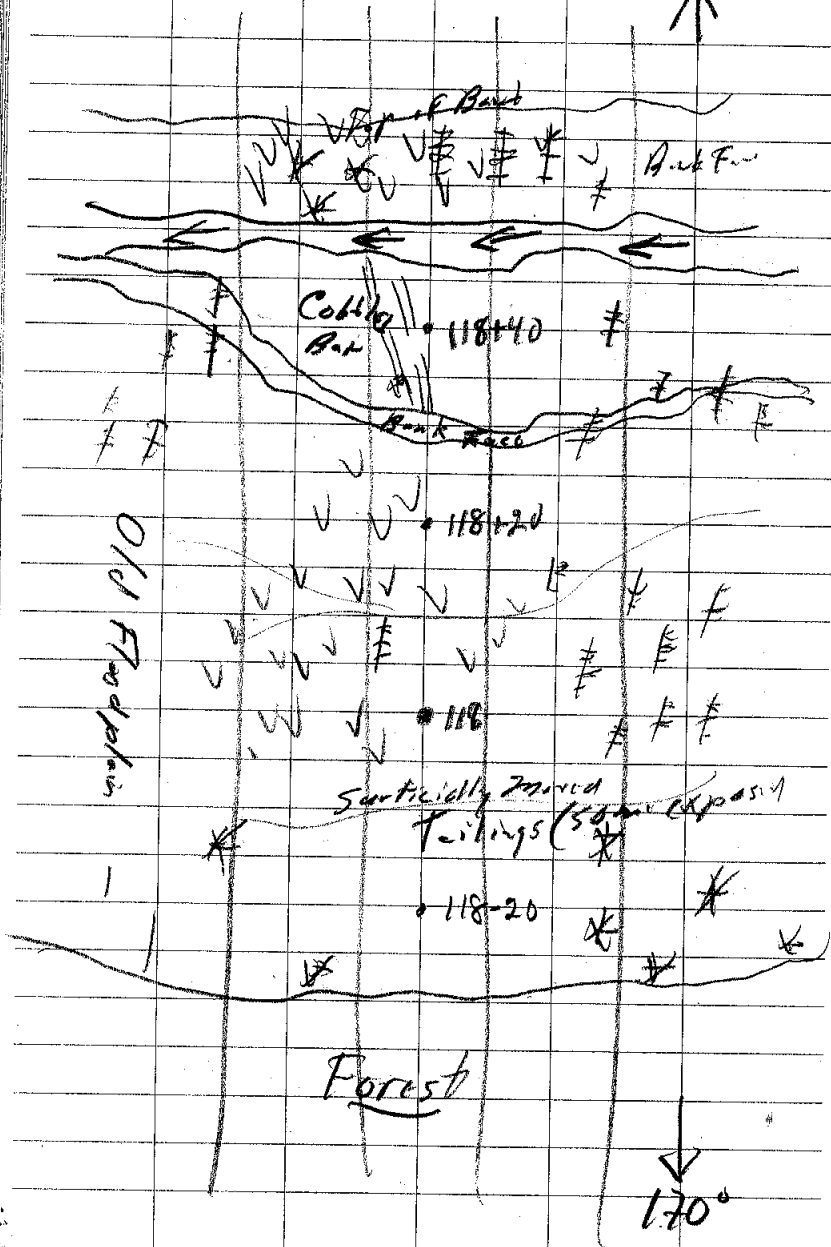 Top of Bank
Bank Face
Cobble
Bar
118+40
Bank Face
118+20
Old Floodplain
118
Surficially Mixed
Tailings (some exposed
118-20
Forest
170°